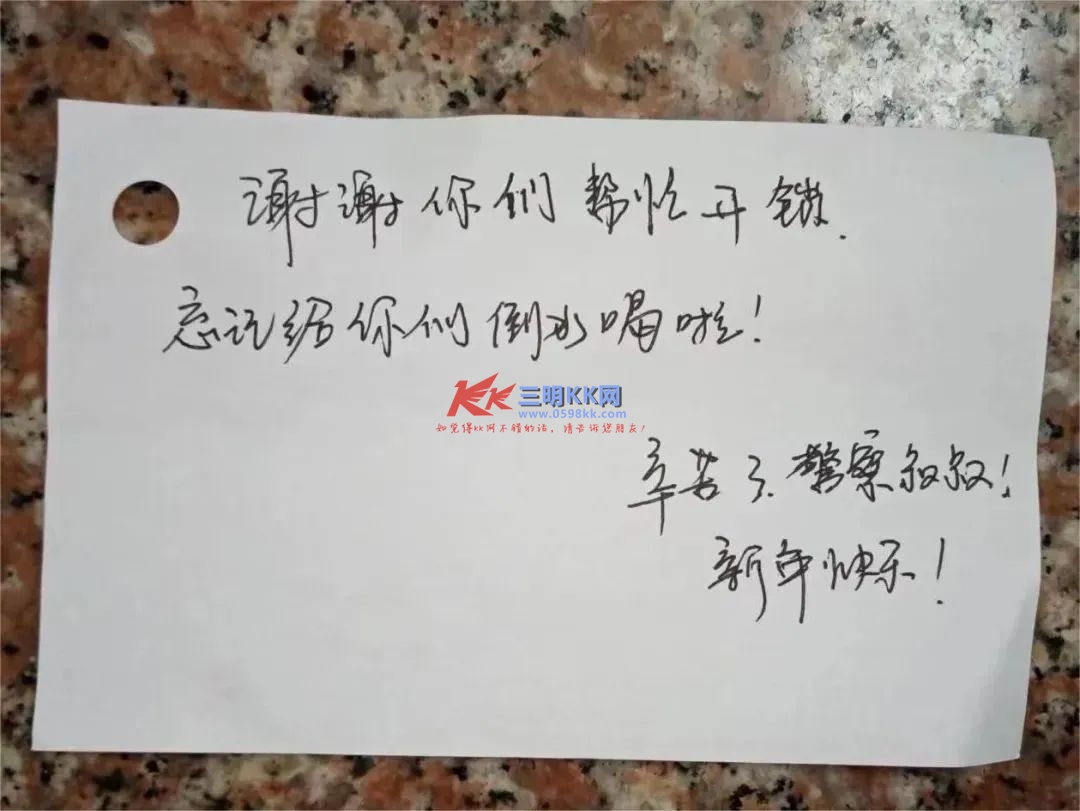 谢谢你们帮忙开锁.
忘记给你们倒水喝啦!
KK 三明KK网
www.0598kk.com
如觉得kk网不错的话，请告诉您朋友!
辛苦了.警察叔叔!
新年快乐!